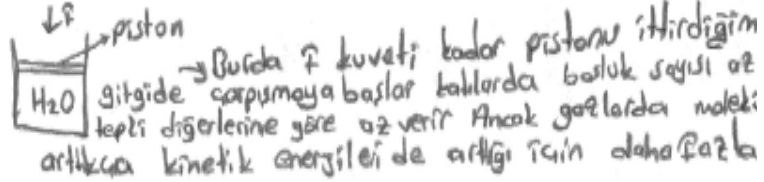 ↓F
piston
→ Burda F kuveti kadar pistonu ittirdiğim
H2O gitgide çarpışmaya başlar katılarda boşluk sayısı az
tepki diğerlerine göre az verir Ancak gazlarda molekü
artıkça kinetik enerjileri de arttığı için daha fazla